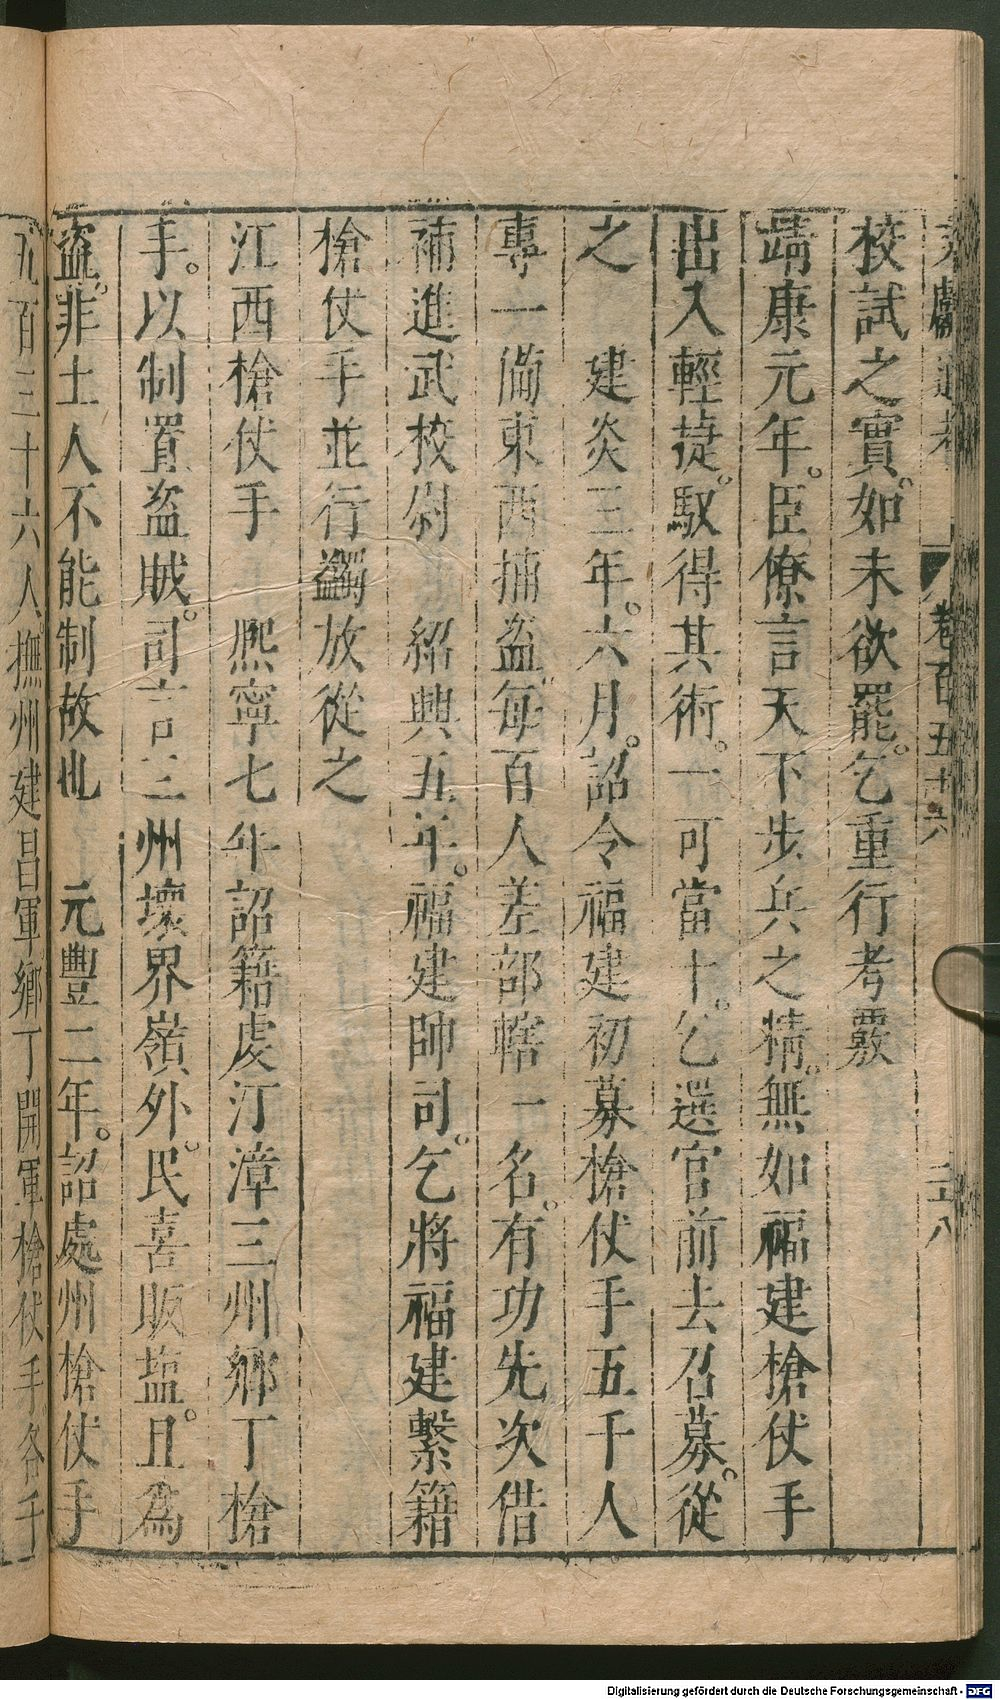 文獻通考 卷百五十六 三八
校試之實。如未欲罷。乞重行考覈
靖康元年。臣僚言天下步兵之精。無如福建槍仗手
出入輕㨗。馭得其術。一可當十。乞選官前去召募。從
之 建炎三年。六月。詔令福建初募槍仗手五千人
專一偹東西捕盗。每百人差部轄一名。有功先次借
補進武校尉 紹興五年。福建帥司。乞將福建繫籍
槍仗手並行蠲放從之
江西槍仗手 熙寧七年詔籍虔汀漳三州鄉丁槍
手。以制置盗賊。司言三州壞界嶺外。民喜販塩。且為
盗。非土人不能制故也 元豐二年。詔處州槍仗手
百三十六人。撫州建昌軍鄉丁開軍槍仗手各千
Digitalisierung gefördert durch die Deutsche Forschungsgemeinschaft - DFG